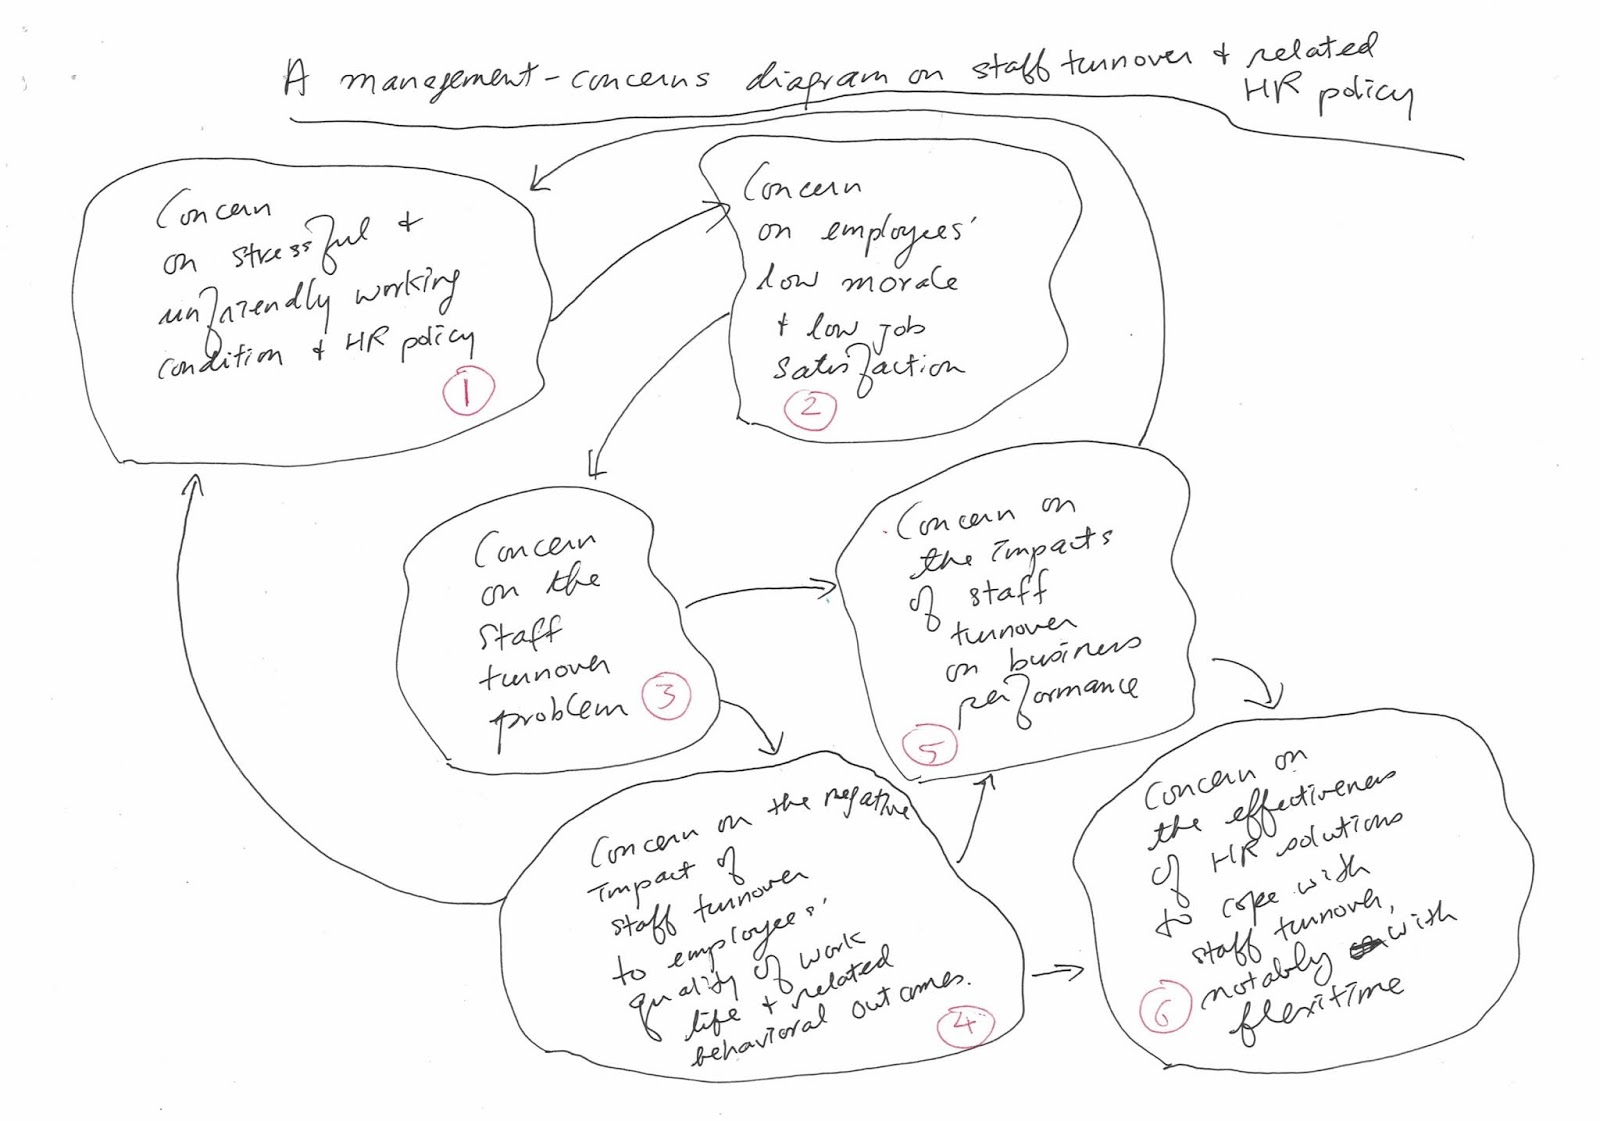 A management-concerns diagram on staff turnover + related
HR policy
Concern
on stressful +
unfriendly working
condition + HR policy
1
Concern
on employees'
low morale
+ low job
satisfaction
2
Concern
on the
staff
turnover
problem
3
Concern on
the impacts
of staff
turnover
on business
performance
5
Concern on the negative
impact of
staff turnover
to employees'
quality of work
life + related
behavioral outcomes.
4
Concern on
the effectiveness
of HR solutions
to cope with
staff turnover,
notably with
flexitime
6